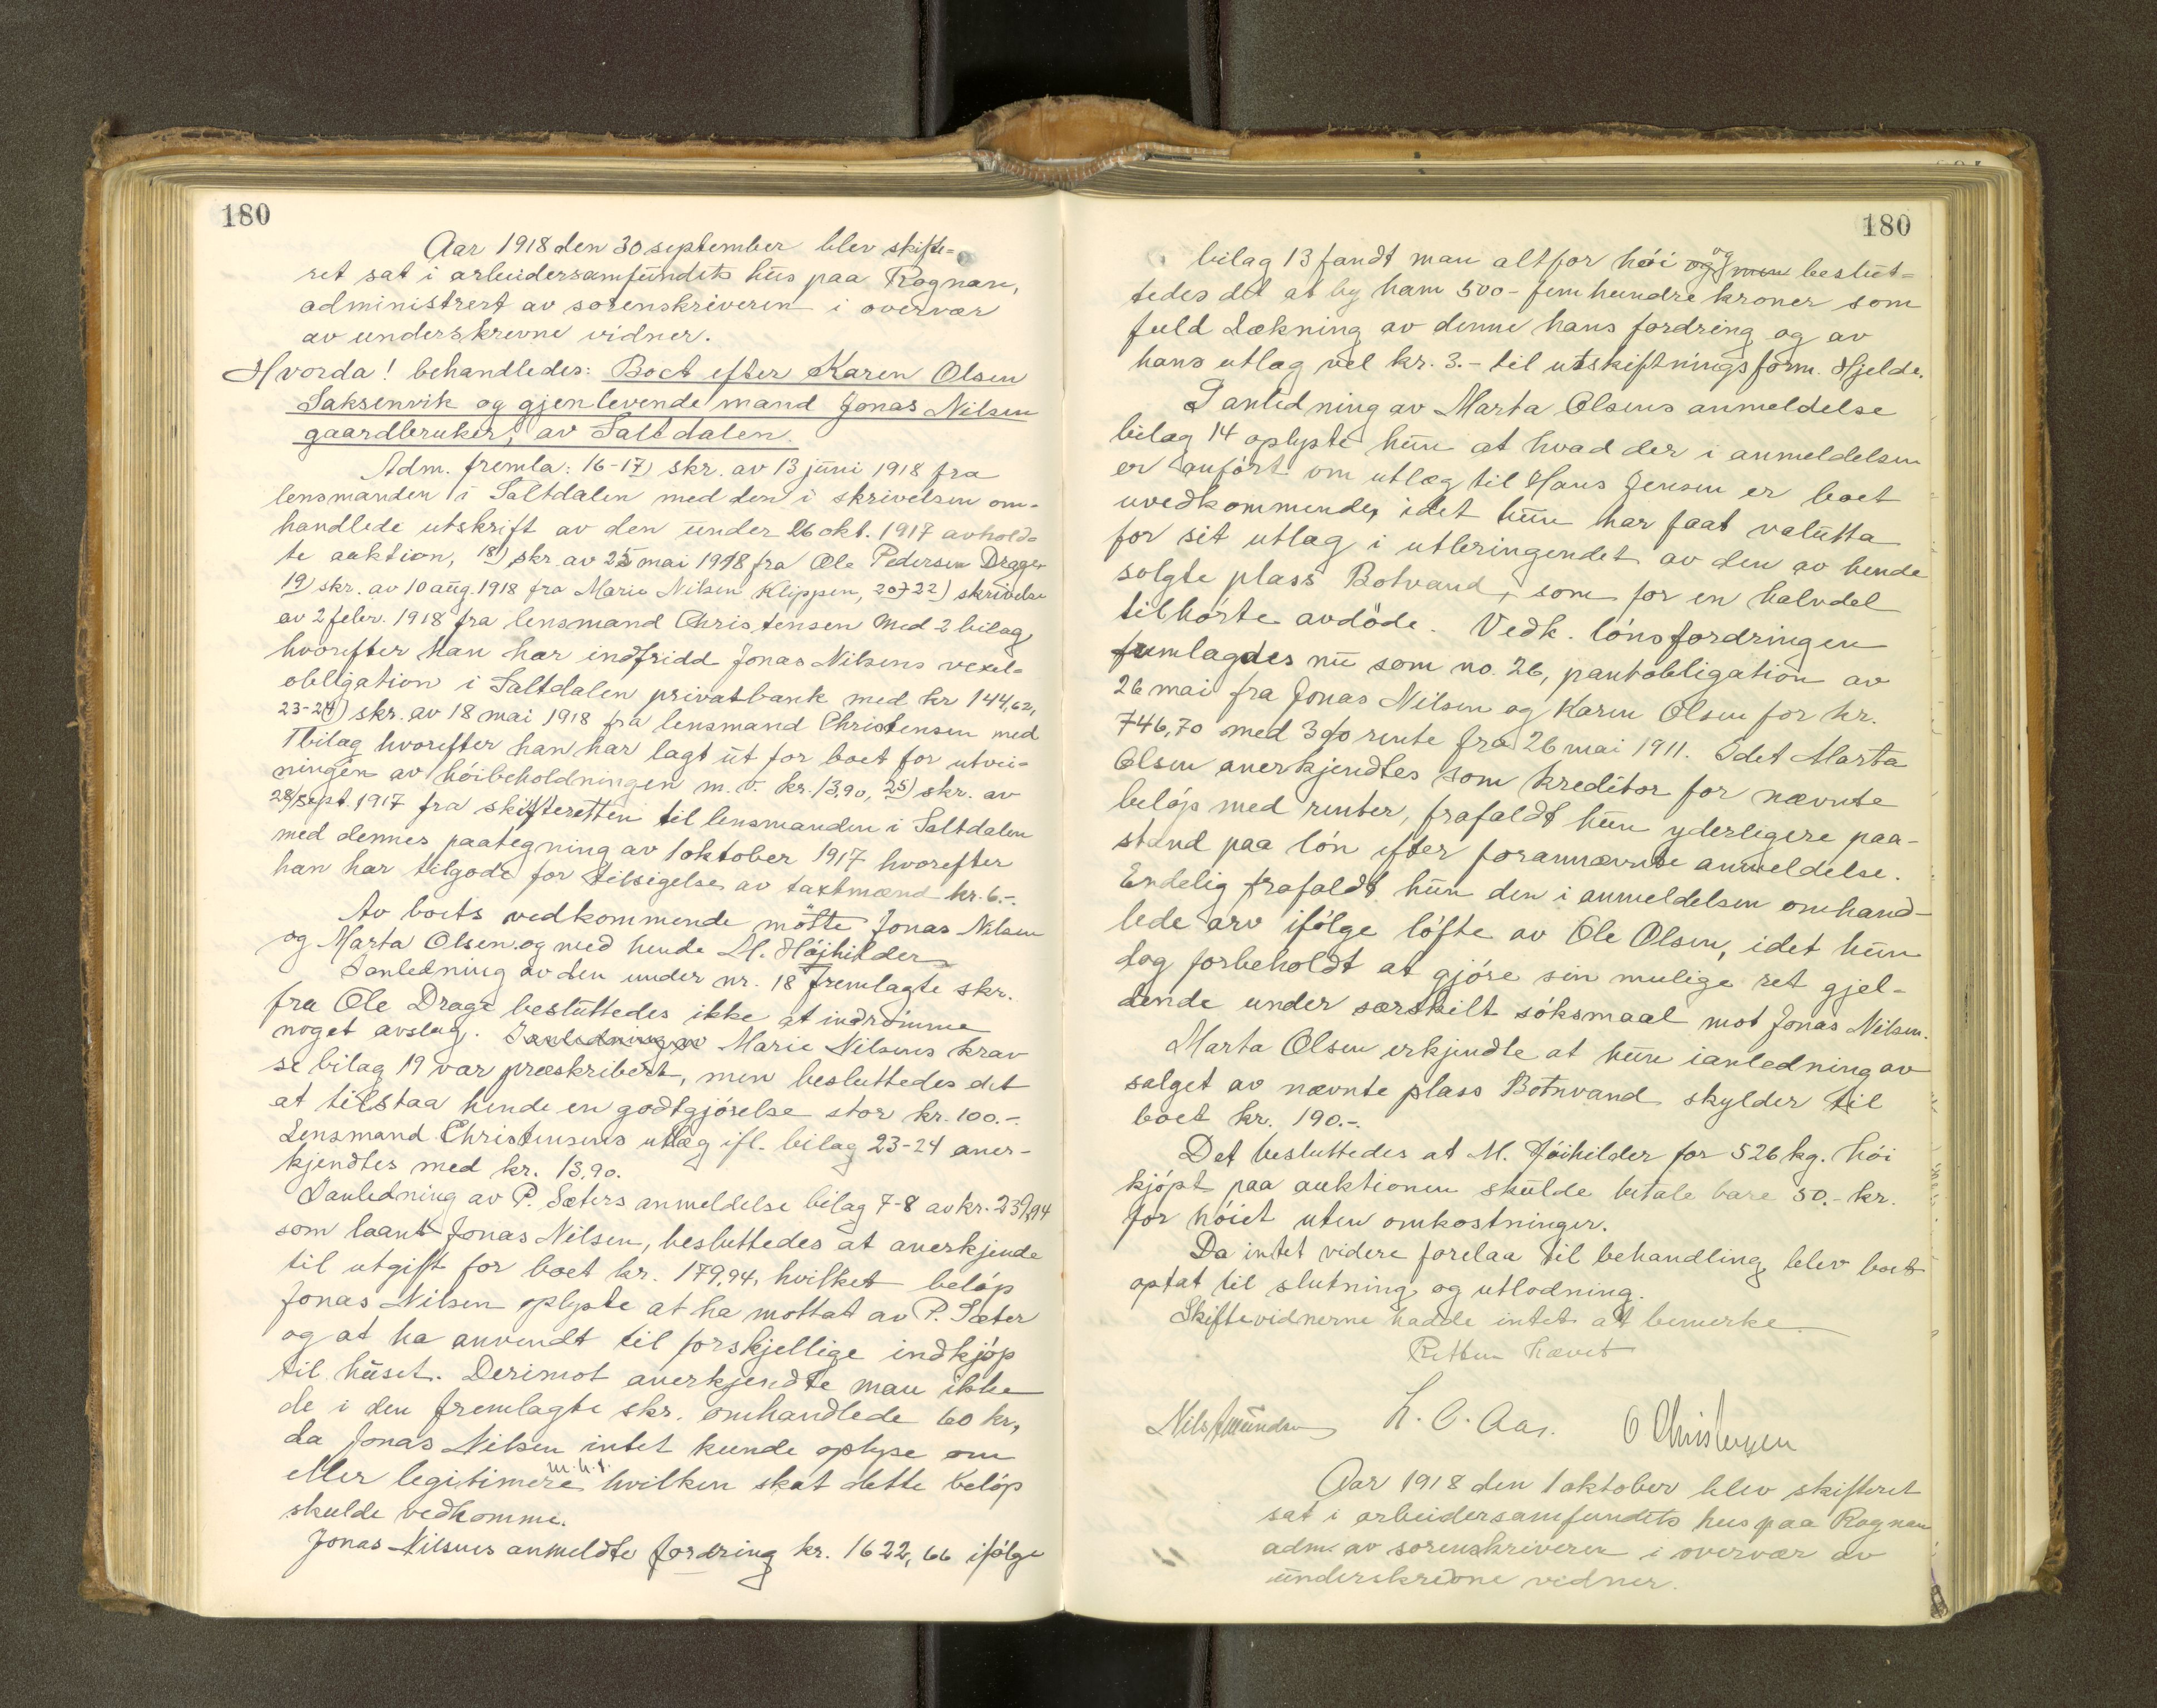 180
Aar 1918 den 30 september blev skifte-
ret sat i arbeidersamfundets hus paa Rognan,
administrert av sorenskriveren i overvær
av underskrevne vidner.
Hvorda! behandledes: Boet efter Karen Olsen
Saksenvik og gjenlevende mand Jonas Nilsen
gaardbruker, av Saltdalen.
Adm. fremla: 16-17) skr. av 13 juni 1918 fra
lensmanden i Saltdalen med den i skrivelsen om-
handlede utskrift av den under 26 okt. 1917 avhold-
te auktion, 18) skr. av 25 mai 1918 fra Ole Pedersen Drage,
19) skr. av 10 aug. 1918 fra Marie Nilsen Klippen, 20-22) skrivelse
av 2 febr. 1918 fra lensmand Christensen med 2 bilag
hvorefter han har indfridd Jonas Nilsens vexel-
obligation i Saltdalen privatbank med kr 144,62,
23-24) skr. av 18 mai 1918 fra lensmand Christensen med
1 bilag hvorefter han har lagt ut for boet for utvei-
ningen av höibeholdningen m. v. kr. 13,90, 25) skr. av
28/sept. 1917 fra skifteretten til lensmanden i Saltdalen
med dennes paategning av 1 oktober 1917 hvorefter
han har tilgode for tilsigelse av taxtmænd kr. 6.-.
Av boets vedkommende mötte Jonas Nilsen
og Marta Olsen og med hende M. Höihilder
Ianledning av den under nr. 18 fremlagte skr.
fra Ole Drage besluttedes ikke at indrömme
noget avslag. Ianledning av Marie Nilsens krav
se bilag 19 var præskribert, men besluttedes det
at tilstaa hende en godtgjörelse stor kr. 100.-.
Lensmand Christensens utlæg ifl. bilag 23-24 aner-
kjendtes med kr. 13,90.
Ianledning av P. Sæters anmeldelse bilag 7-8 av kr. 239,94
som laant Jonas Nilsen, besluttedes at anerkjende
til utgift for boet kr. 179,94, hvilket belöp
Jonas Nilsen oplyste at ha mottat av P. Sæter
og at ha anvendt til forskjellige indkjöp
til huset. Derimot anerkjendte man ikke
de i den fremlagte skr. omhandlede 60 kr,
da Jonas Nilsen intet kunde oplyse om
eller legitimere m.h.t. hvilken skat dette belöp
skulde vedkomme.
Jonas Nilsens anmeldte fordring kr. 1622,66 ifölge
180
bilag 13 fandt man altfor höi og men og beslut-
tedes det at by ham 500 - fem hundre kroner som
fuld dækning av denne hans fordring og av
hans utlæg vel kr. 3.- til utskiftningsform. Hjelde.
I anledning av Marta Olsens anmeldelse
bilag 14 oplyste hun at hvad der i anmeldelsen
er anfört om utlæg til Hans Jensen er boet
uvedkommende, idet hun har faat valutta
for sit utlæg i utbringendet av den av hende
solgte plass Botvand, som for en halvdel
tilhörte avdöde. Vedk. lönsfordringen
fremlagdes nu som no. 26, pantobligation av
26 mai fra Jonas Nilsen og Karen Olsen for kr.
746,70 med 3 % rente fra 26 mai 1911. Idet Marta
Olsen anerkjendtes som kreditor for nævnte
belöp med renter, frafaldt hun yderligere paa-
stand paa lön efter forannævnte anmeldelse.
Endelig frafaldt hun den i anmeldelsen omhand-
lede arv ifölge löfte av Ole Olsen, idet hun
dog forbeholdt at gjöre sin mulige ret gjel-
dende under særskilt söksmaal mot Jonas Nilsen.
Marta Olsen erkjendte at hun ianledning av
salget av nævnte plass Botnvand skylder til
boet kr. 190.-.
Det besluttedes at M. Höihilder for 526 kg. höi
kjöpt paa auktionen skulde betale bare 50.- kr.
for höiet uten omkostninger.
Da intet videre forelaa til behandling blev boet
optat til slutning og utlodning.
Skiftevidnerne hadde intet at bemerke.
Retten hævet
Nils Amundsen H. C. Aas. O Christensen
Aar 1918 den 1 oktober blev skifteret
sat i arbeidersamfundets hus paa Rognan
adm. av sorenskriveren i overvær av
underskrevne vidner.